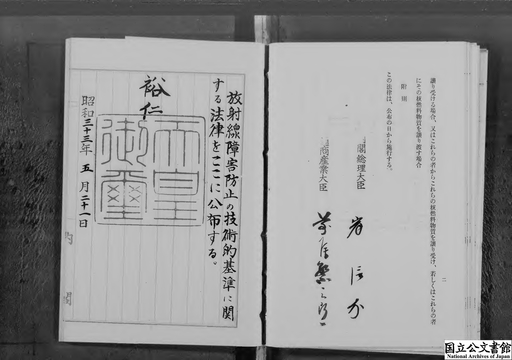 譲り受ける場合、又はこれらの者からこれらの核燃料物質を譲り受け、若しくはこれらの者
にその核燃料物質を譲り渡す場合
附則
この法律は、公布の日から施行する。
内閣総理大臣 岸信介
通商産業大臣
二
放射線障害防止の技術的基準に関
する法律をここに公布する。
裕仁
天皇
御璽
昭和三十三年五月二十一日
国立公文書館
National Archives of Japan